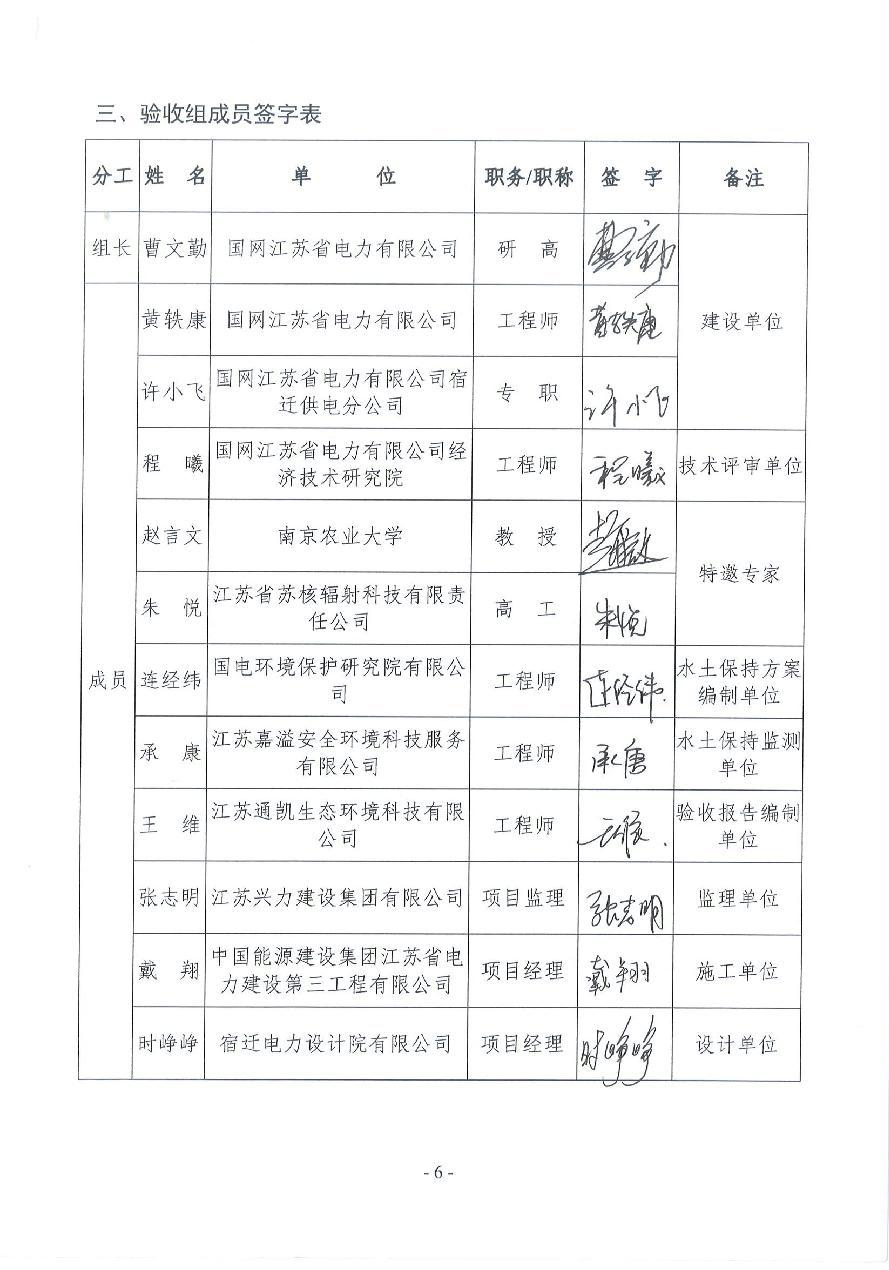 三、验收组成员签字表
分工 姓 名 单 位 职务/职称 签 字 备注
组长 曹文勤 国网江苏省电力有限公司 研 高 曹文勤
建设单位
黄轶康 国网江苏省电力有限公司 工程师 黄轶康
许小飞 国网江苏省电力有限公司宿
迁供电分公司 专 职 许小飞
程 曦 国网江苏省电力有限公司经
济技术研究院 工程师 程曦 技术评审单位
赵言文 南京农业大学 教 授
特邀专家
朱 悦 江苏省苏核辐射科技有限责
任公司 高 工 朱悦
成员 连经纬 国电环境保护研究院有限公
司 工程师 连经纬 水土保持方案
编制单位
承 康 江苏嘉溢安全环境科技服务
有限公司 工程师 承康 水土保持监测
单位
王 维 江苏通凯生态环境科技有限
公司 工程师 王维 验收报告编制
单位
张志明 江苏兴力建设集团有限公司 项目监理 张志明 监理单位
戴 翔 中国能源建设集团江苏省电
力建设第三工程有限公司 项目经理 戴翔 施工单位
时峥峥 宿迁电力设计院有限公司 项目经理 时峥峥 设计单位
- 6 -